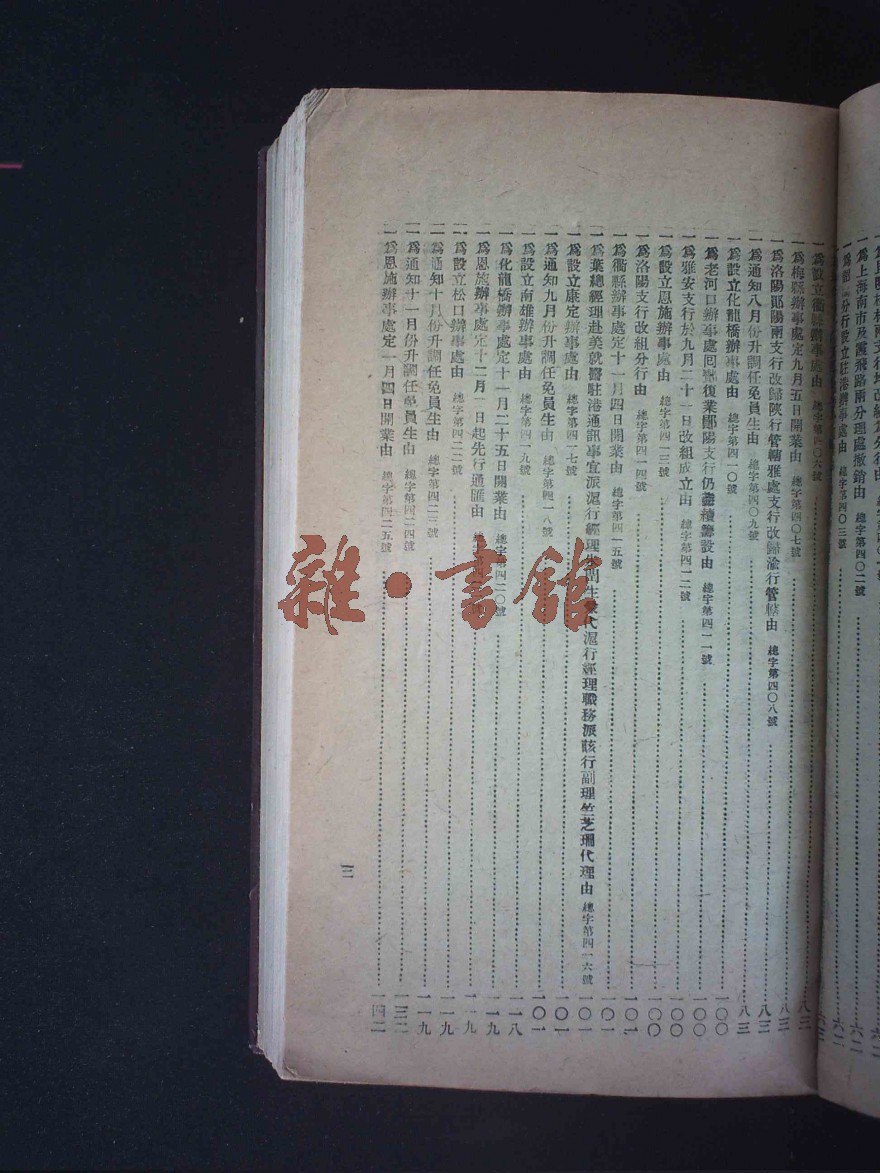 一 為上海南市及霞飛路兩分理處撤銷由 總字第四〇二號 六二
分行設立駐港辦事處由 總字第四〇三號 六二
一 為設立衢縣辦事處由 總字第四〇六號 八三
一 為梅縣辦事處定九月五日開業由 總字第四〇七號 八三
一 為洛陽鄖陽兩支行改歸陝行管轄雅處支行改歸渝行管轄由 總字第四〇八號 八三
一 為通知八月份升調任免員生由 總字第四〇九號 八三
一 為設立化龍橋辦事處由 總字第四一〇號 一〇〇
一 為老河口辦事處復業鄖陽支行仍繼續籌設由 總字第四一一號 一〇〇
一 為雅安支行於九月二十一日改組成立由 總字第四一二號 一〇〇
一 為設立恩施辦事處由 總字第四一三號 一〇〇
一 為洛陽支行改組分行由 總字第四一四號 一〇一
一 為衢縣辦事處定十一月四日開業由 總字第四一五號 一〇一
一 為葉總經理赴美就醫駐港通訊事宜派滬行經理 代滬行經理職務派該行副理竺芝珊代理由 總字第四一六號 一〇一
一 為設立康定辦事處由 總字第四一七號 一〇一
一 為通知九月份升調任免員生由 總字第四一八號 一〇一
一 為設立南雄辦事處由 總字第四一九號 一一八
一 為化龍橋辦事處定十一月二十五日開業由 總字第四二〇號 一一九
一 為恩施辦事處定十二月一日起先行通匯由 總字第四 一一九
一 為設立松口辦事處由 總字第四二二號 一一九
一 為通知十月份升調任免員生由 總字第四二三號 一一九
一 為通知十一月份升調任免員生由 總字第四二四號 一三二
一 為恩施辦事處定一月四日開業由 總字第四二五號 一四二
三
雜·書館